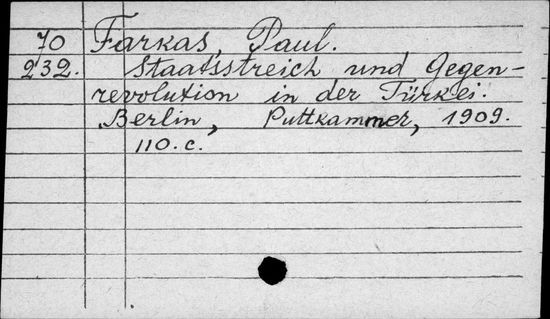 70 Farkas, Paul.
232. Staatsstreich und Gegen-
revolution in der Türkei.
Berlin, Puttkammer, 1909.
110. c.